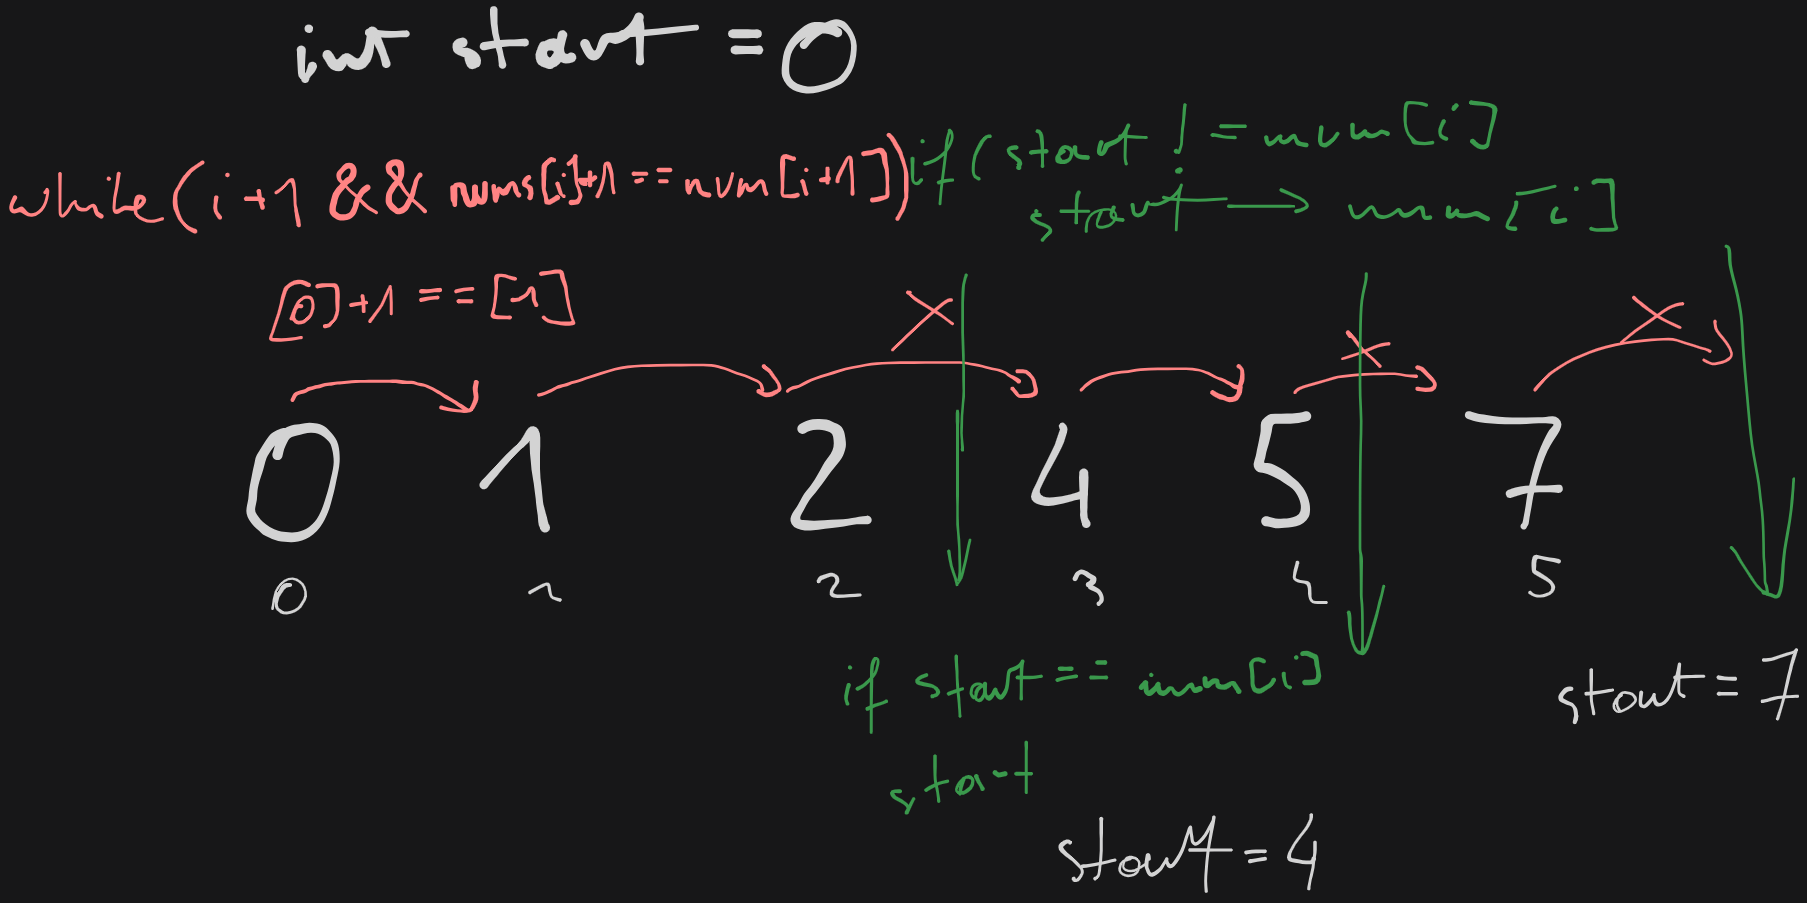 int start = 0
while(i+1 && nums[i]+1 == num[i+1])
if(start != num[i]
start → num[i]
[0]+1 == [1]
0 1 2 4 5 7
0 1 2 3 4 5
if start == num[i]
start
start = 7
start = 4